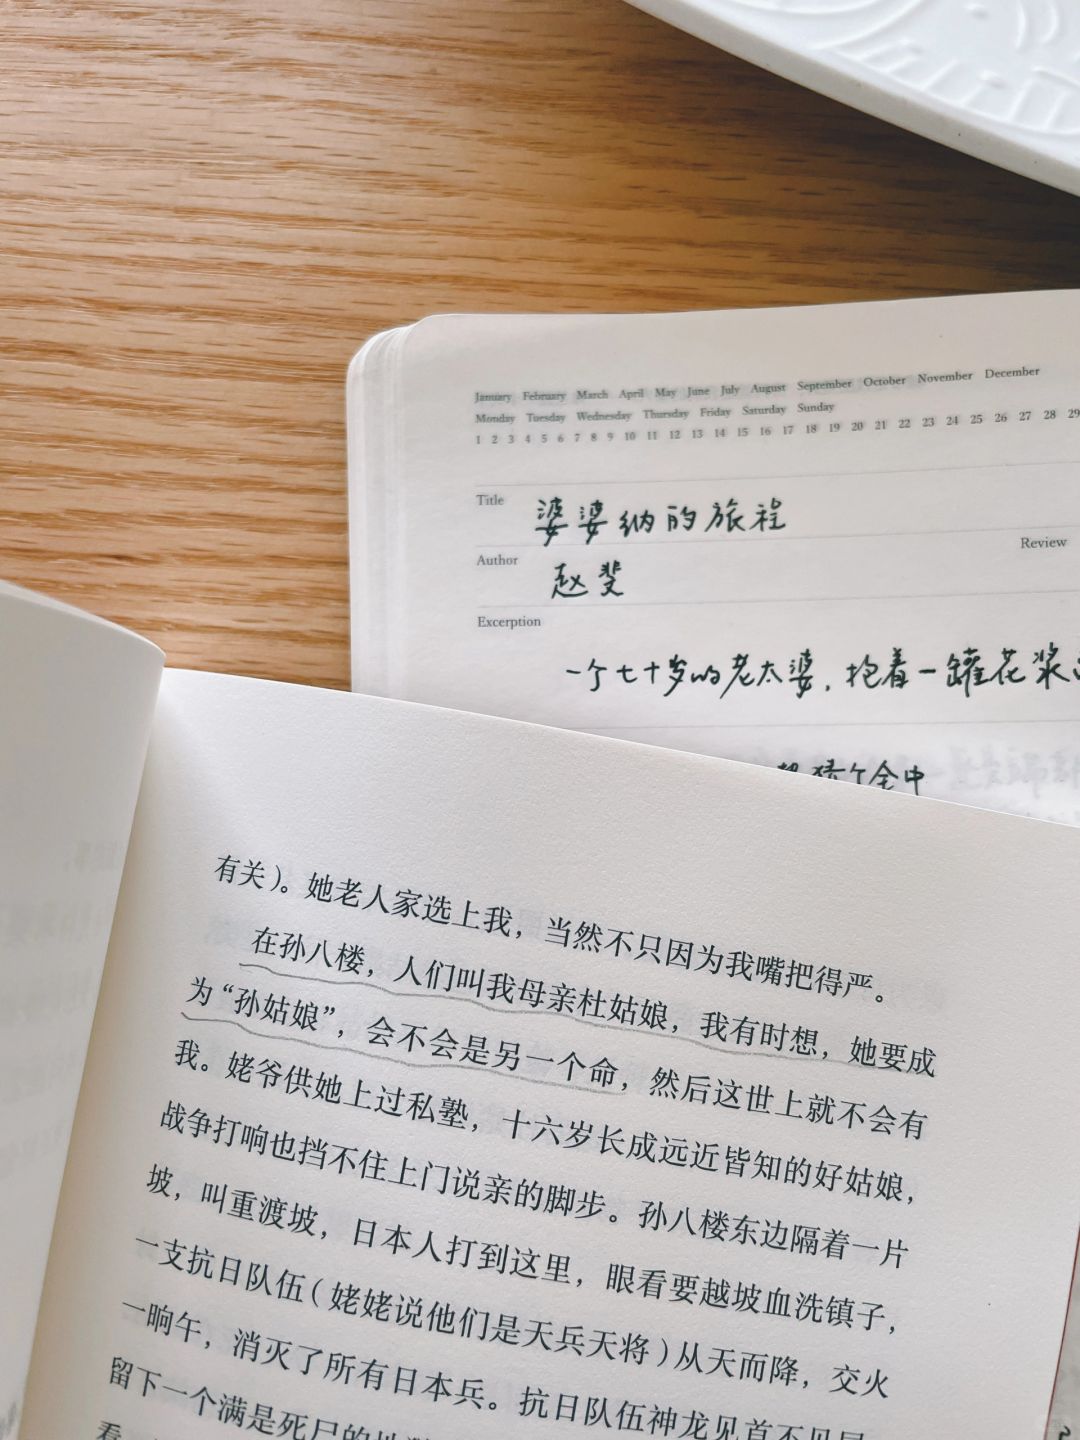 January February March April May June July August September October November December
Monday Tuesday Wednesday Thursday Friday Saturday Sunday
1 2 3 4 5 6 7 8 9 10 11 12 13 14 15 16 17 18 19 20 21 22 23 24 25 26 27 28 29
Title 婆婆纳的旅程
Review
Author 赵斐
Excerption
一个七十岁的老太婆，抱着一罐花浆
个全中
有关）。她老人家选上我，当然不只因为我嘴把得严。
在孙八楼，人们叫我母亲杜姑娘，我有时想，她要成
为“孙姑娘”，会不会是另一个命，然后这世上就不会有
我。姥爷供她上过私塾，十六岁长成远近皆知的好姑娘，
战争打响也挡不住上门说亲的脚步。孙八楼东边隔着一片
坡，叫重渡坡，日本人打到这里，眼看要越坡血洗镇子，
一支抗日队伍（姥姥说他们是天兵天将）从天而降，交火
一晌午，消灭了所有日本兵。抗日队伍神龙见首不见尾
留下一个满是死尸的
看